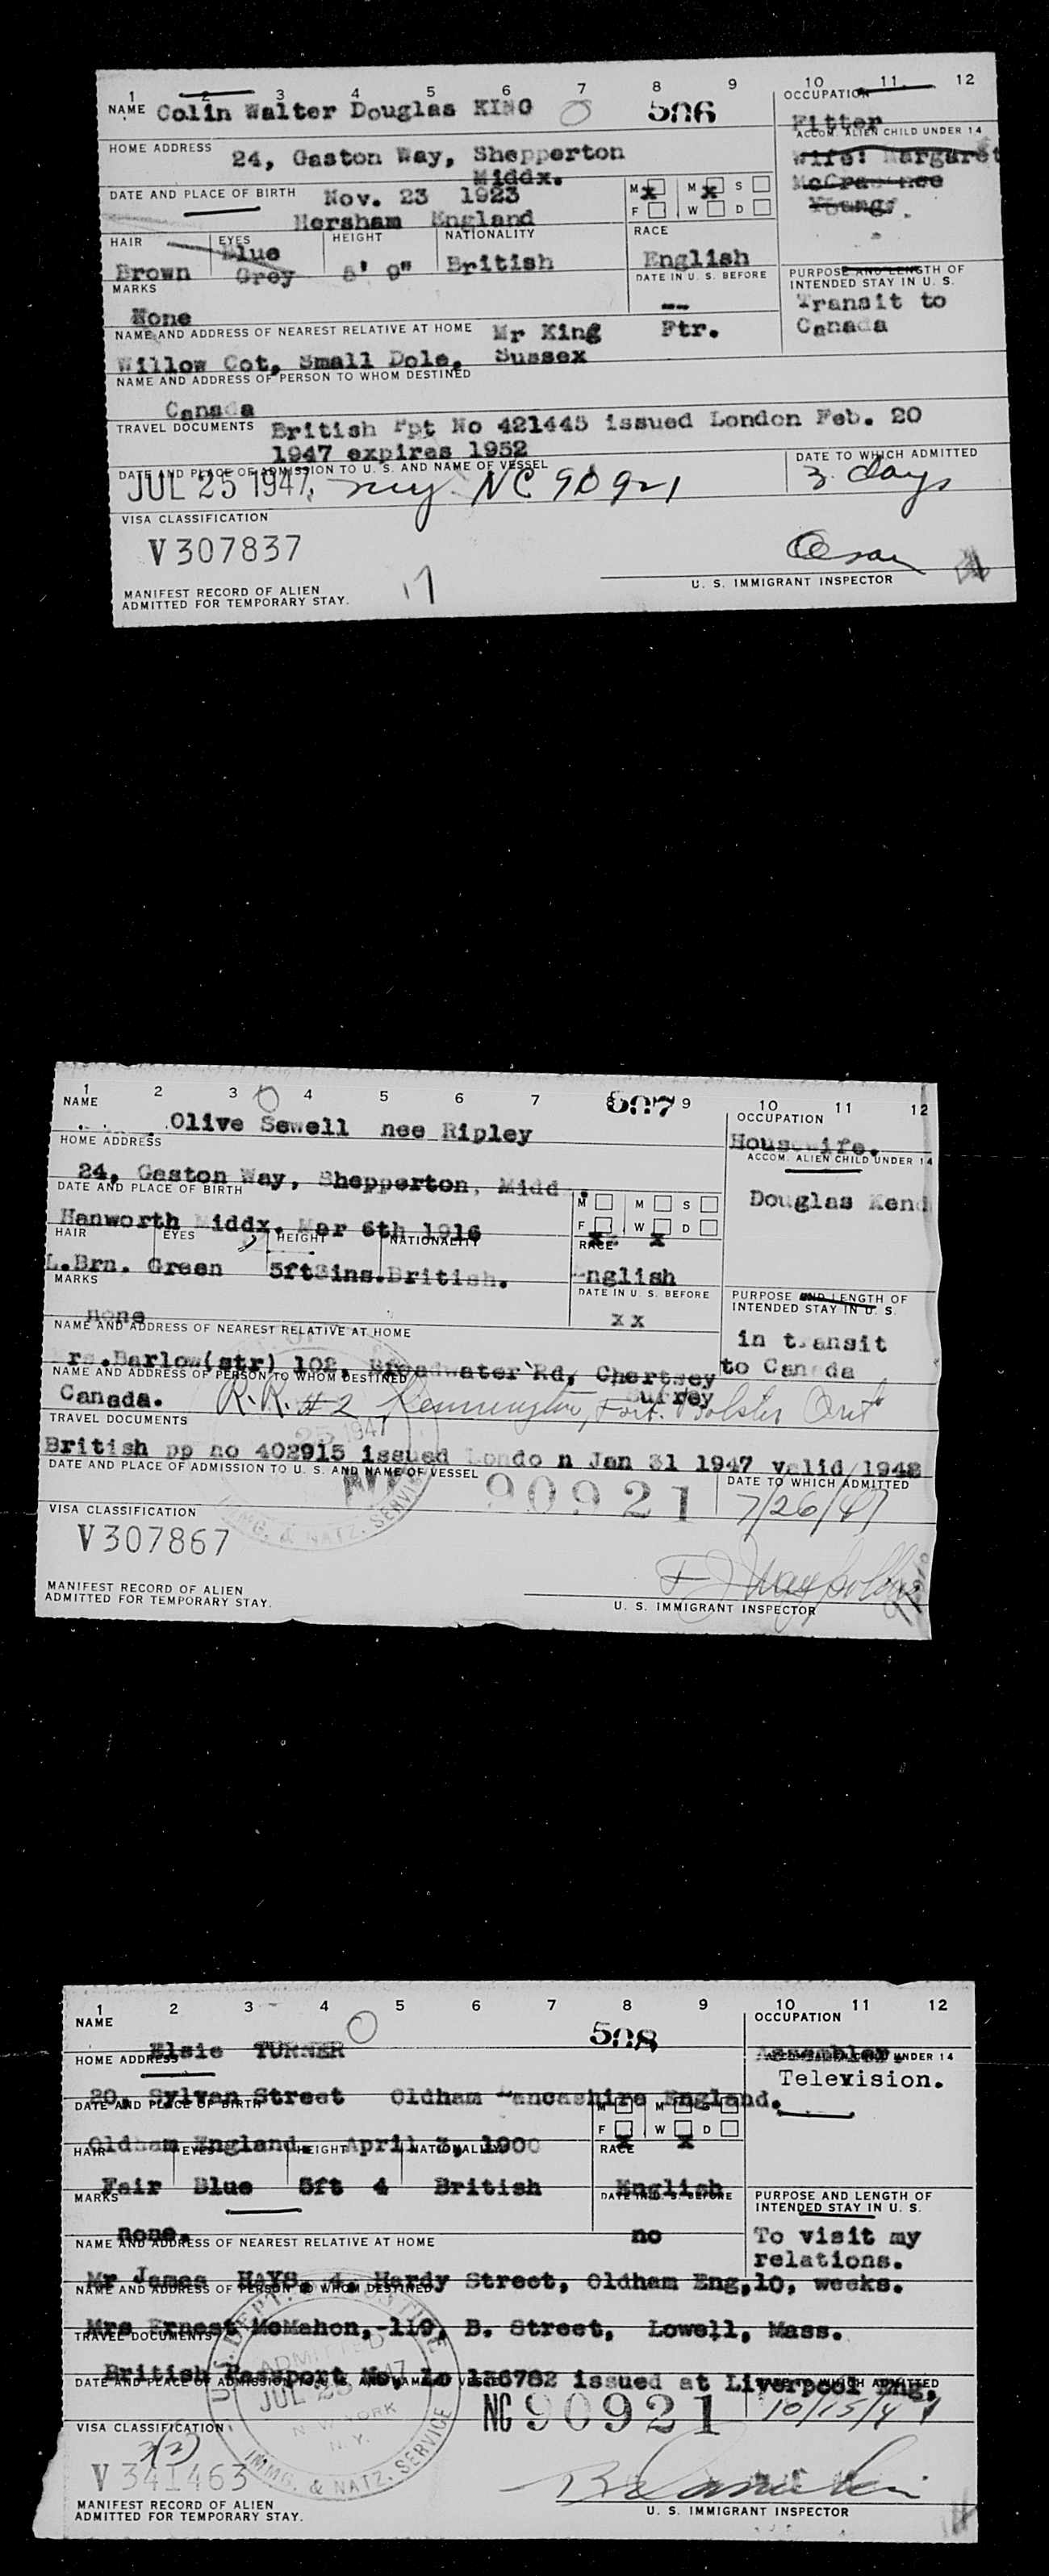 1 2 3 4 5 6 7 8 9 10 11 12
NAME Colin Walter Douglas KING 506 OCCUPATION
Fitter
ACCOM. ALIEN CHILD UNDER 14
HOME ADDRESS 24, Gaston Way, Shepperton
Middx.
Wife: Margaret
DATE AND PLACE OF BIRTH Nov. 23 1923 M x M x S
Hersham England F W D
HAIR EYES HEIGHT NATIONALITY RACE
Blue
Brown Grey British English
MARKS DATE IN U. S. BEFORE PURPOSE AND LENGTH OF
INTENDED STAY IN U. S.
None --
Transit to
Canada
NAME AND ADDRESS OF NEAREST RELATIVE AT HOME Mr King Ftr.
Willow Cot, Small Dole, Sussex
NAME AND ADDRESS OF PERSON TO WHOM DESTINED
Canada
TRAVEL DOCUMENTS British Ppt No 421445 issued London Feb. 20
1947 expires 1952
DATE AND PLACE OF ADMISSION TO U. S. AND NAME OF VESSEL DATE TO WHICH ADMITTED
JUL 25 1947, NY NC 90921 3 days
VISA CLASSIFICATION
V307837
MANIFEST RECORD OF ALIEN
ADMITTED FOR TEMPORARY STAY. 17 U. S. IMMIGRANT INSPECTOR
1 2 3 4 5 6 7 8 9 10 11 12
NAME 507 OCCUPATION
Olive Sewell nee Ripley Housewife.
HOME ADDRESS ACCOM. ALIEN CHILD UNDER 14
24, Gaston Way, Shepperton, Midd Douglas Kend
DATE AND PLACE OF BIRTH M M S
Hanworth Middx. Mar 6th 1916 F x W x D
HAIR EYES HEIGHT NATIONALITY RACE
L.Brn. Green 5ft3ins. British. English
MARKS DATE IN U. S. BEFORE PURPOSE AND LENGTH OF
INTENDED STAY IN U. S.
none xx
in transit
to Canada
NAME AND ADDRESS OF NEAREST RELATIVE AT HOME
Mrs.Barlow(str) 102, Broadwater Rd, Chertsey
Surrey
NAME AND ADDRESS OF PERSON TO WHOM DESTINED
Canada. R.R. #2 Ont
TRAVEL DOCUMENTS
British pp no 402915 issued London Jan 31 1947 valid 1948
DATE AND PLACE OF ADMISSION TO U. S. AND NAME OF VESSEL DATE TO WHICH ADMITTED
NC 90921 7/26/47
VISA CLASSIFICATION
V307867
IMMG. & NATZ. SERVICE
MANIFEST RECORD OF ALIEN
ADMITTED FOR TEMPORARY STAY. U. S. IMMIGRANT INSPECTOR
1 2 3 4 5 6 7 8 9 10 11 12
NAME 508 OCCUPATION
Elsie TURNER Assembler.
HOME ADDRESS ACCOM. ALIEN CHILD UNDER 14
Television.
20, Sylvan Street Oldham Lancashire England.
DATE AND PLACE OF BIRTH M M S
Oldham England. April 3, 1900 F x W x D
HAIR EYES HEIGHT NATIONALITY RACE
Fair Blue 5ft 4 British English
MARKS DATE IN U. S. BEFORE PURPOSE AND LENGTH OF
INTENDED STAY IN U. S.
none. no To visit my
relations.
NAME AND ADDRESS OF NEAREST RELATIVE AT HOME
Mr James HAYS, 4, Hardy Street, Oldham Eng, 10, weeks.
NAME AND ADDRESS OF PERSON TO WHOM DESTINED
Mrs Ernest McMahon, 119, B. Street, Lowell, Mass.
TRAVEL DOCUMENTS
British Passport No. Lo 136782 issued at Liverpool Eng,
DATE AND PLACE OF ADMISSION TO U. S. AND NAME OF VESSEL DATE TO WHICH ADMITTED
NC 90921 10/15/47
U.S. DEPT. OF JUSTICE
ADMITTED
JUL 25 1947
NEW YORK
N. Y.
IMMG. & NATZ. SERVICE
VISA CLASSIFICATION
3(2)
V 341463
MANIFEST RECORD OF ALIEN
ADMITTED FOR TEMPORARY STAY. U. S. IMMIGRANT INSPECTOR